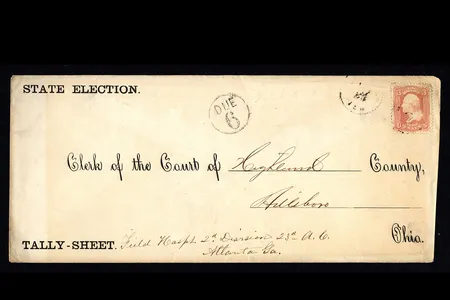 STATE ELECTION.
DUE
6
Clerk of the Court of Highland County,
Hillsboro
Ohio.
TALLY-SHEET. Field Hosp. 2d Division 23d A. C.
Atlanta Ga.